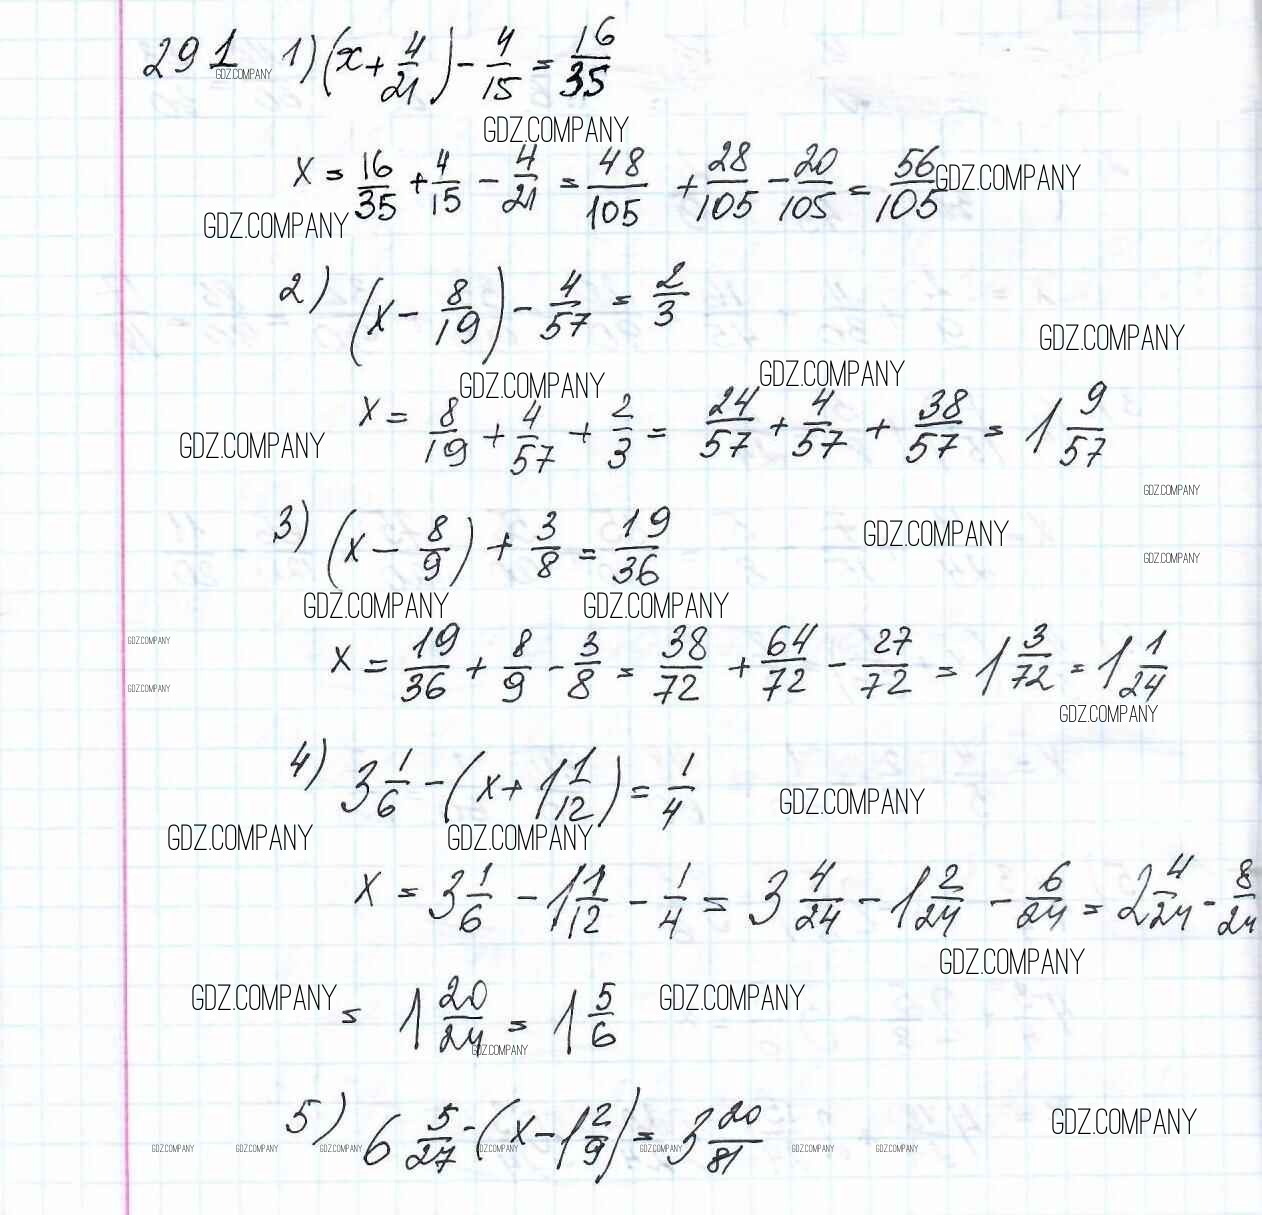 291 1) (x + 4/21) - 4/15 = 16/35
GDZ.COMPANY
GDZ.COMPANY
x = 16/35 + 4/15 - 4/21 = 48/105 + 28/105 - 20/105 = 56/105
GDZ.COMPANY
GDZ.COMPANY
2) (x - 8/19) - 4/57 = 2/3
GDZ.COMPANY
GDZ.COMPANY
GDZ.COMPANY
x = 8/19 + 4/57 + 2/3 = 24/57 + 4/57 + 38/57 = 1 9/57
GDZ.COMPANY
GDZ.COMPANY
3) (x - 8/9) + 3/8 = 19/36
GDZ.COMPANY
GDZ.COMPANY
GDZ.COMPANY GDZ.COMPANY
GDZ.COMPANY
x = 19/36 + 8/9 - 3/8 = 38/72 + 64/72 - 27/72 = 1 3/72 = 1 1/24
GDZ.COMPANY
GDZ.COMPANY
4) 3 1/6 - (x + 1 1/12) = 1/4
GDZ.COMPANY
GDZ.COMPANY GDZ.COMPANY
x = 3 1/6 - 1 1/12 - 1/4 = 3 4/24 - 1 2/24 - 6/24 = 2 4/24 - 8/24
GDZ.COMPANY
GDZ.COMPANY GDZ.COMPANY
= 1 20/24 = 1 5/6
GDZ.COMPANY
5) 6 5/27 - (x - 1 2/9) = 3 20/81
GDZ.COMPANY
GDZ.COMPANY GDZ.COMPANY GDZ.COMPANY GDZ.COMPANY GDZ.COMPANY GDZ.COMPANY GDZ.COMPANY